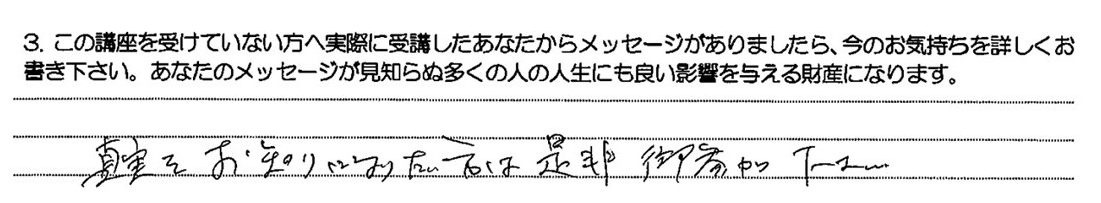 3. この講座を受けていない方へ実際に受講したあなたからメッセージがありましたら、今のお気持ちを詳しくお
書き下さい。あなたのメッセージが見知らぬ多くの人の人生にも良い影響を与える財産になります。
真実をお知りになりたい方は是非御参加下さい